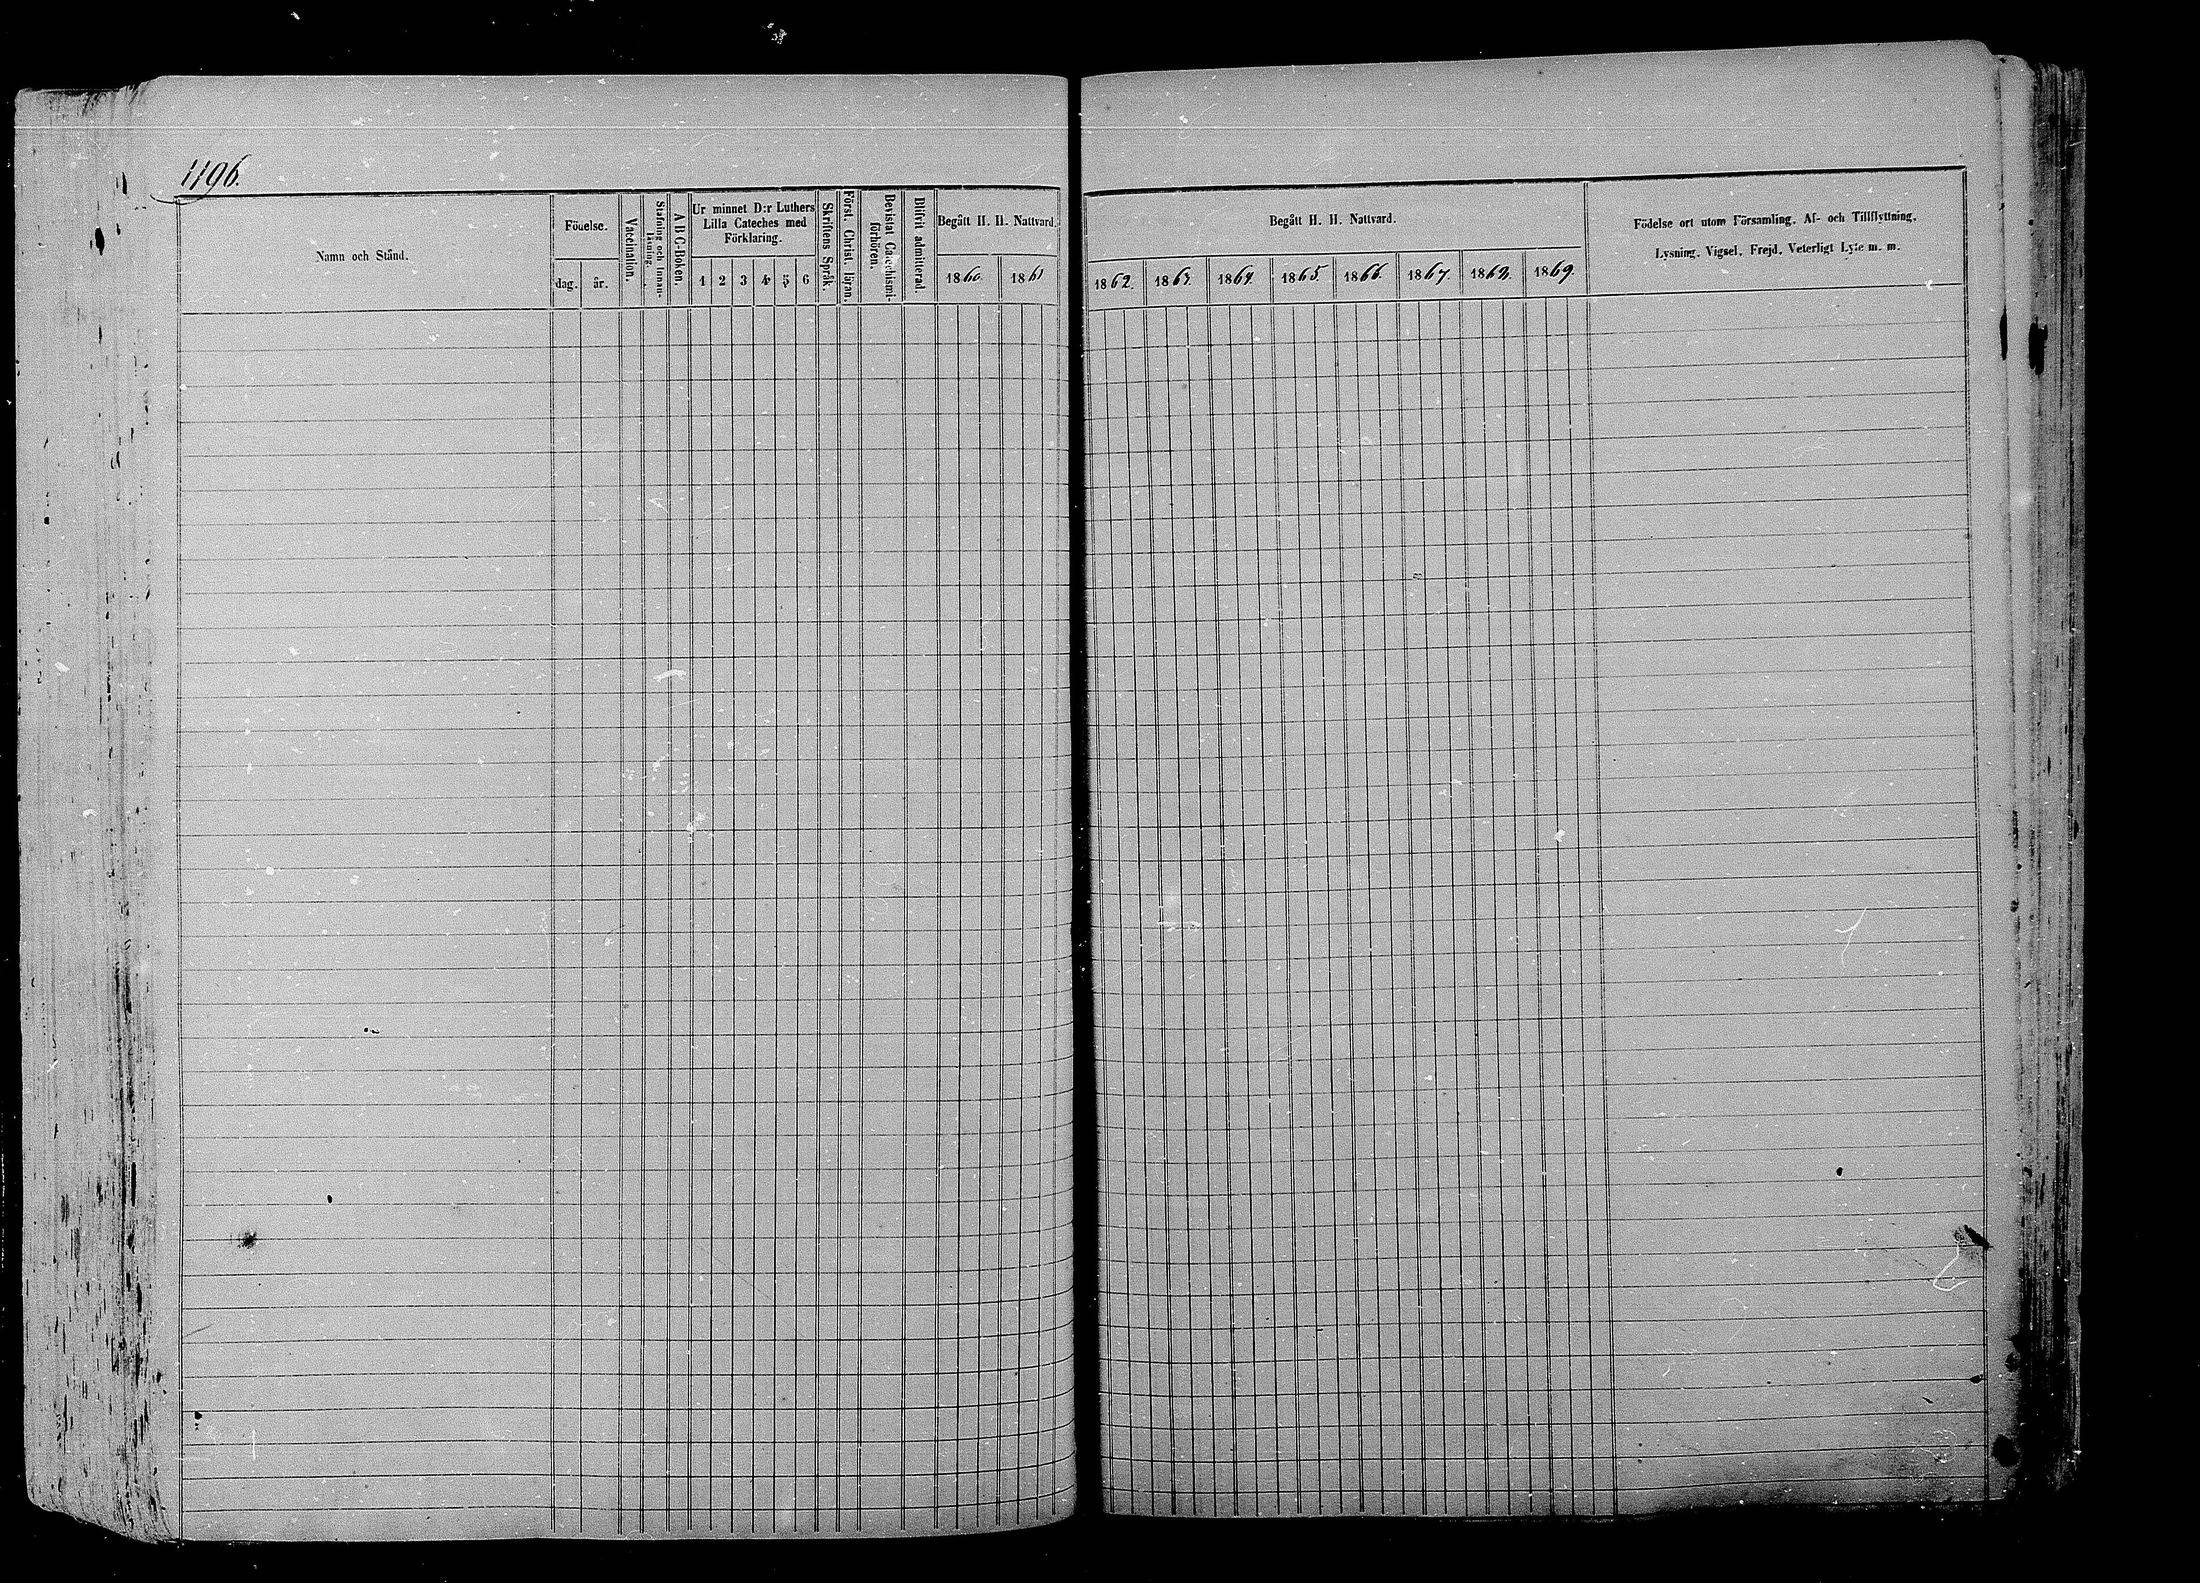 1196.
Namn och Stånd.
Födelse.
dag.
år.
Vaccination.
Stafning och Innan-
läsning.
A B C-Boken.
Ur minnet D:r Luthers
Lilla Cateches med
Förklaring.
1 2 3 4 5 6
Skriftens Språk.
Först. Christ. läran.
Bevistat Catechismi-
förhören.
Blifvit admitterad.
Begått H. H. Nattvard.
1860.
1861
Begått H. H. Nattvard.
1862.
1863.
1864.
1865.
1866.
1867.
1868.
1869.
Födelse ort utom Församling. Af- och Tillflyttning.
Lysning. Vigsel. Frejd. Veterligt Lyte m. m.